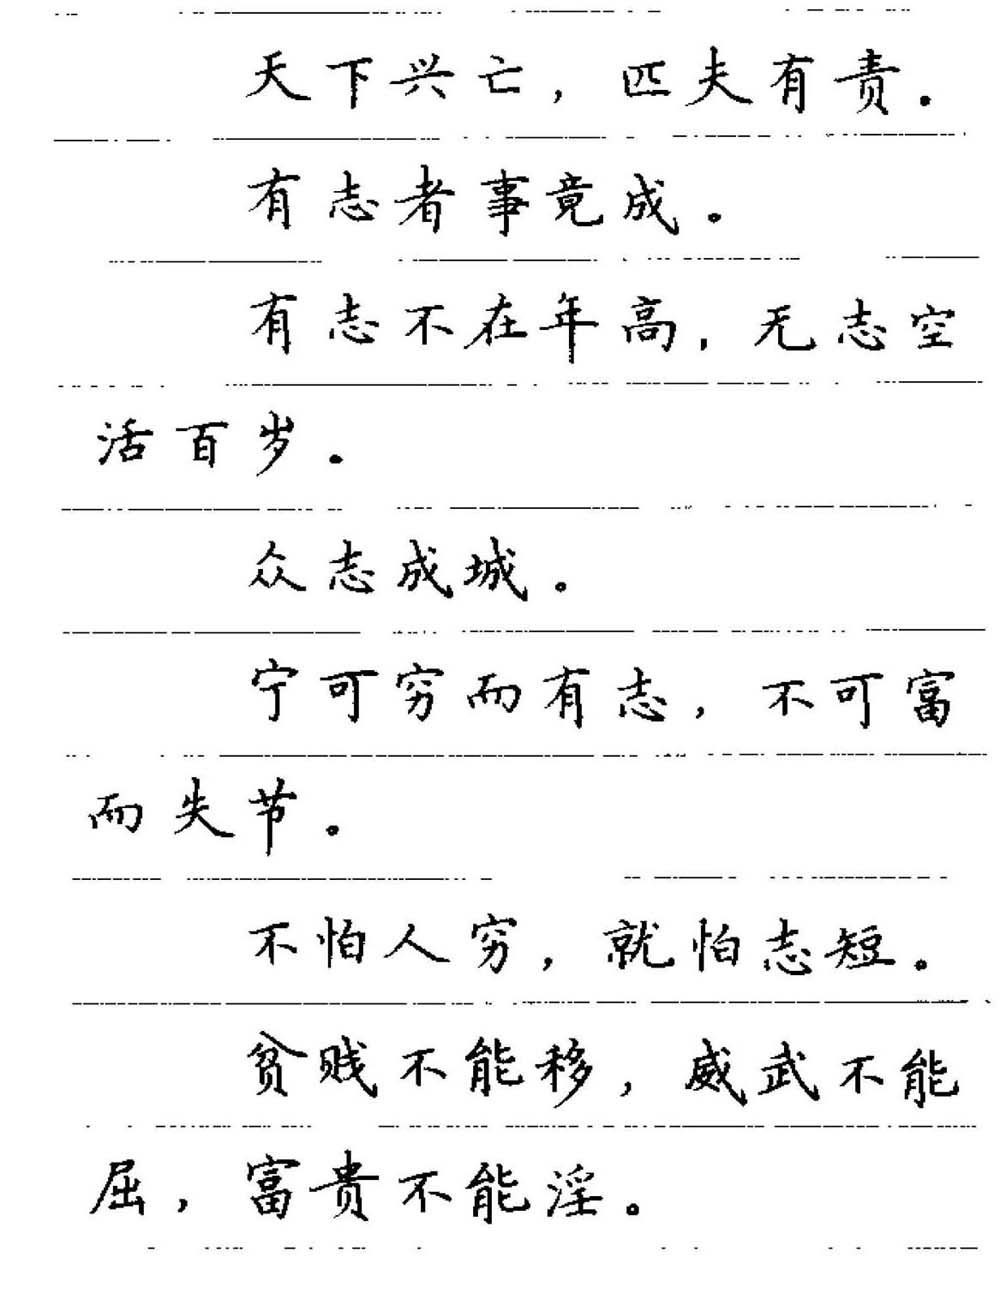 天下兴亡，匹夫有责。
有志者事竟成。
有志不在年高，无志空
活百岁。
众志成城。
宁可穷而有志，不可富
而失节。
不怕人穷，就怕志短。
贫贱不能移，威武不能
屈，富贵不能淫。